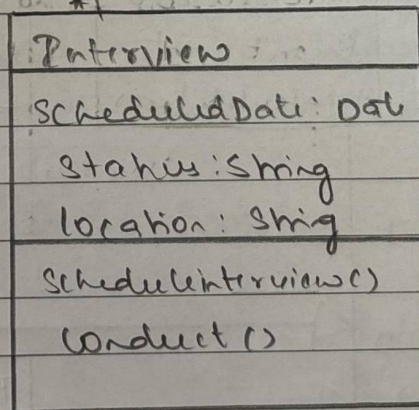 Interview
ScheduledDate: Date
Status: String
location: String
scheduleinterview()
conduct()